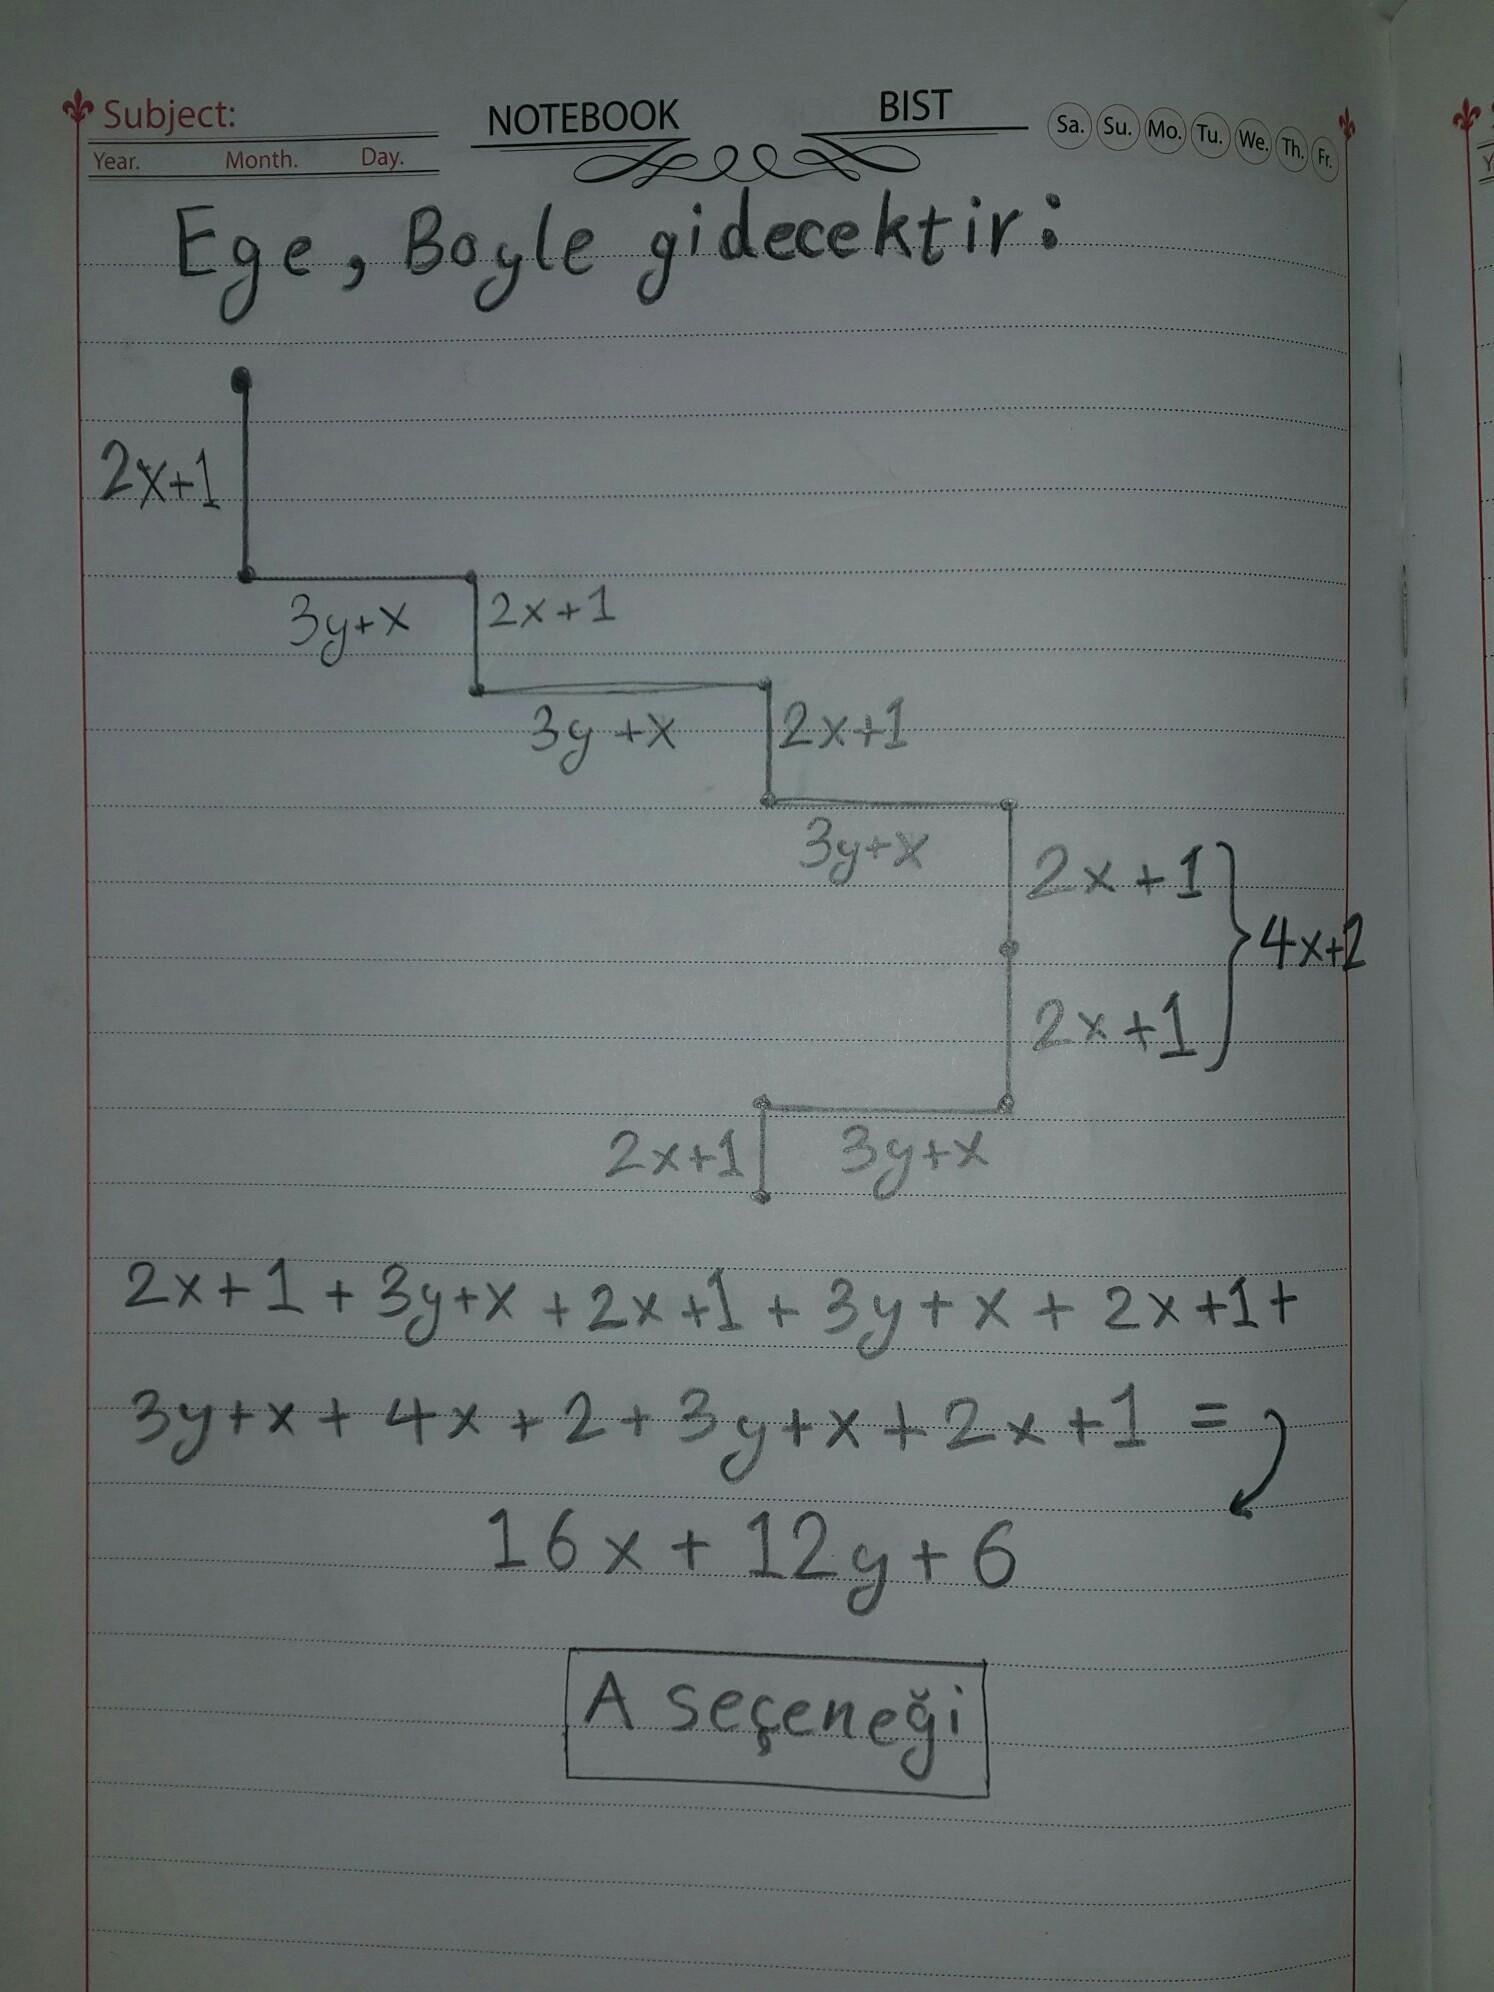 Subject:
NOTEBOOK
BIST
Sa. Su. Mo. Tu. We. Th. Fr.
Year. Month. Day.
Ege, Boyle gidecektir:
2x+1
3y+x
2x+1
3y+x
2x+1
3y+x
2x+1
4x+2
2x+1
2x+1
3y+x
2x+1+3y+x+2x+1+3y+x+2x+1+
3y+x+4x+2+3y+x+2x+1=
16x+12y+6
A seçeneği